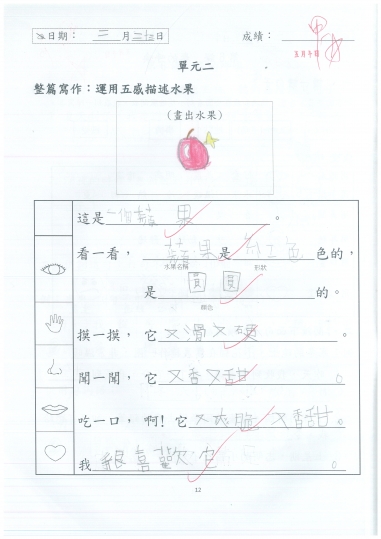 日期：三月二十三日
成績：甲
五月午餐
單元二
整篇寫作：運用五感描述水果
（畫出水果）
這是一個蘋果。
看一看，蘋果是紅色色的，
水果名稱 形狀
是圓圓的。
顏色
摸一摸，它又滑又硬。
聞一聞，它又香又甜。
吃一口，啊！它又爽脆又香甜。
我很喜歡它。
12